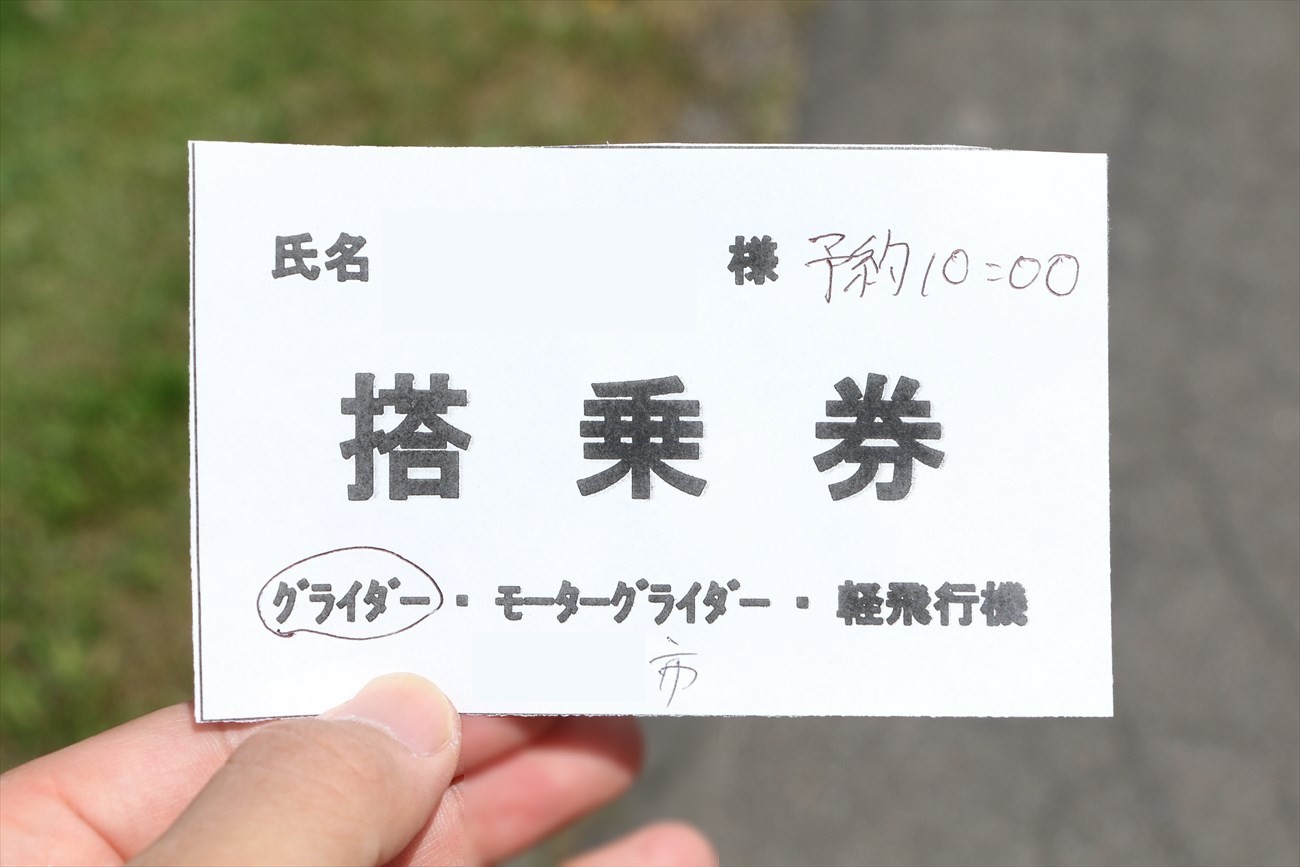 氏名 様 予約10:00
搭乗券
グライダー・モーターグライダー・軽飛行機
市